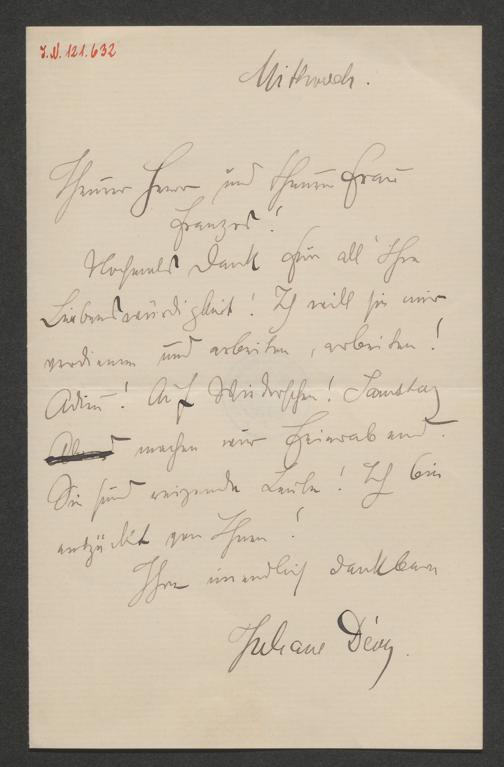 J.N. 121.632
Mittwoch.
Theurer Herr und theure Frau
Franzos!
Nochmals Dank für all' Ihre
Liebenswürdigkeit! Ich will sie mir
verdienen und arbeiten, arbeiten!
Adieu! Auf Wiedersehen! Samstag
machen wir Feierabend.
Sie sind reizende Leute! Ich bin
entzückt von Ihnen!
Ihre unendlich dankbare
Juliane Déry.